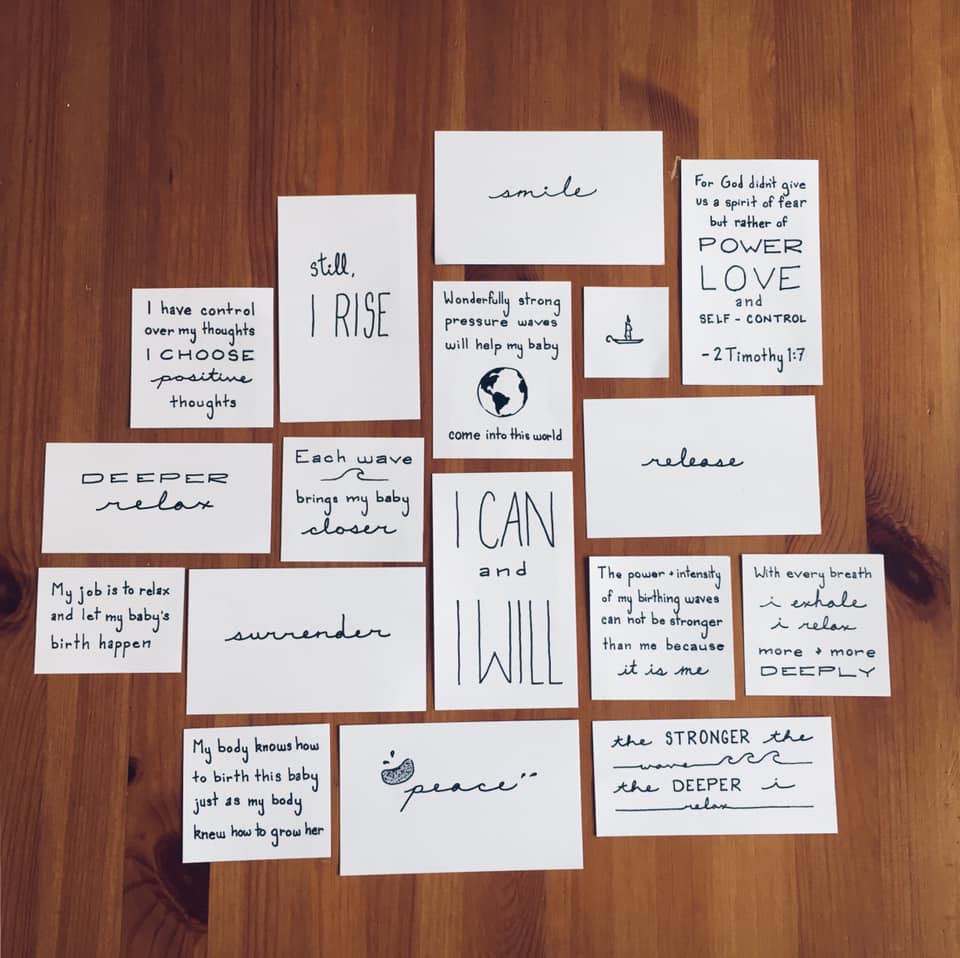 smile
For God didn't give
us a spirit of fear
but rather of
POWER
LOVE
and
SELF-CONTROL
-2 Timothy 1:7
still,
I RISE
Wonderfully strong
pressure waves
will help my baby
come into this world
I have control
over my thoughts
I CHOOSE
positive
thoughts
release
DEEPER
relax
Each wave
brings my baby
closer
I CAN
and
I WILL
The power + intensity
of my birthing waves
can not be stronger
than me because
it is me
With every breath
i exhale
i relax
more + more
DEEPLY
My job is to relax
and let my baby's
birth happen
surrender
My body knows how
to birth this baby
just as my body
knew how to grow her
peace
the STRONGER the
wave
the DEEPER i
relax